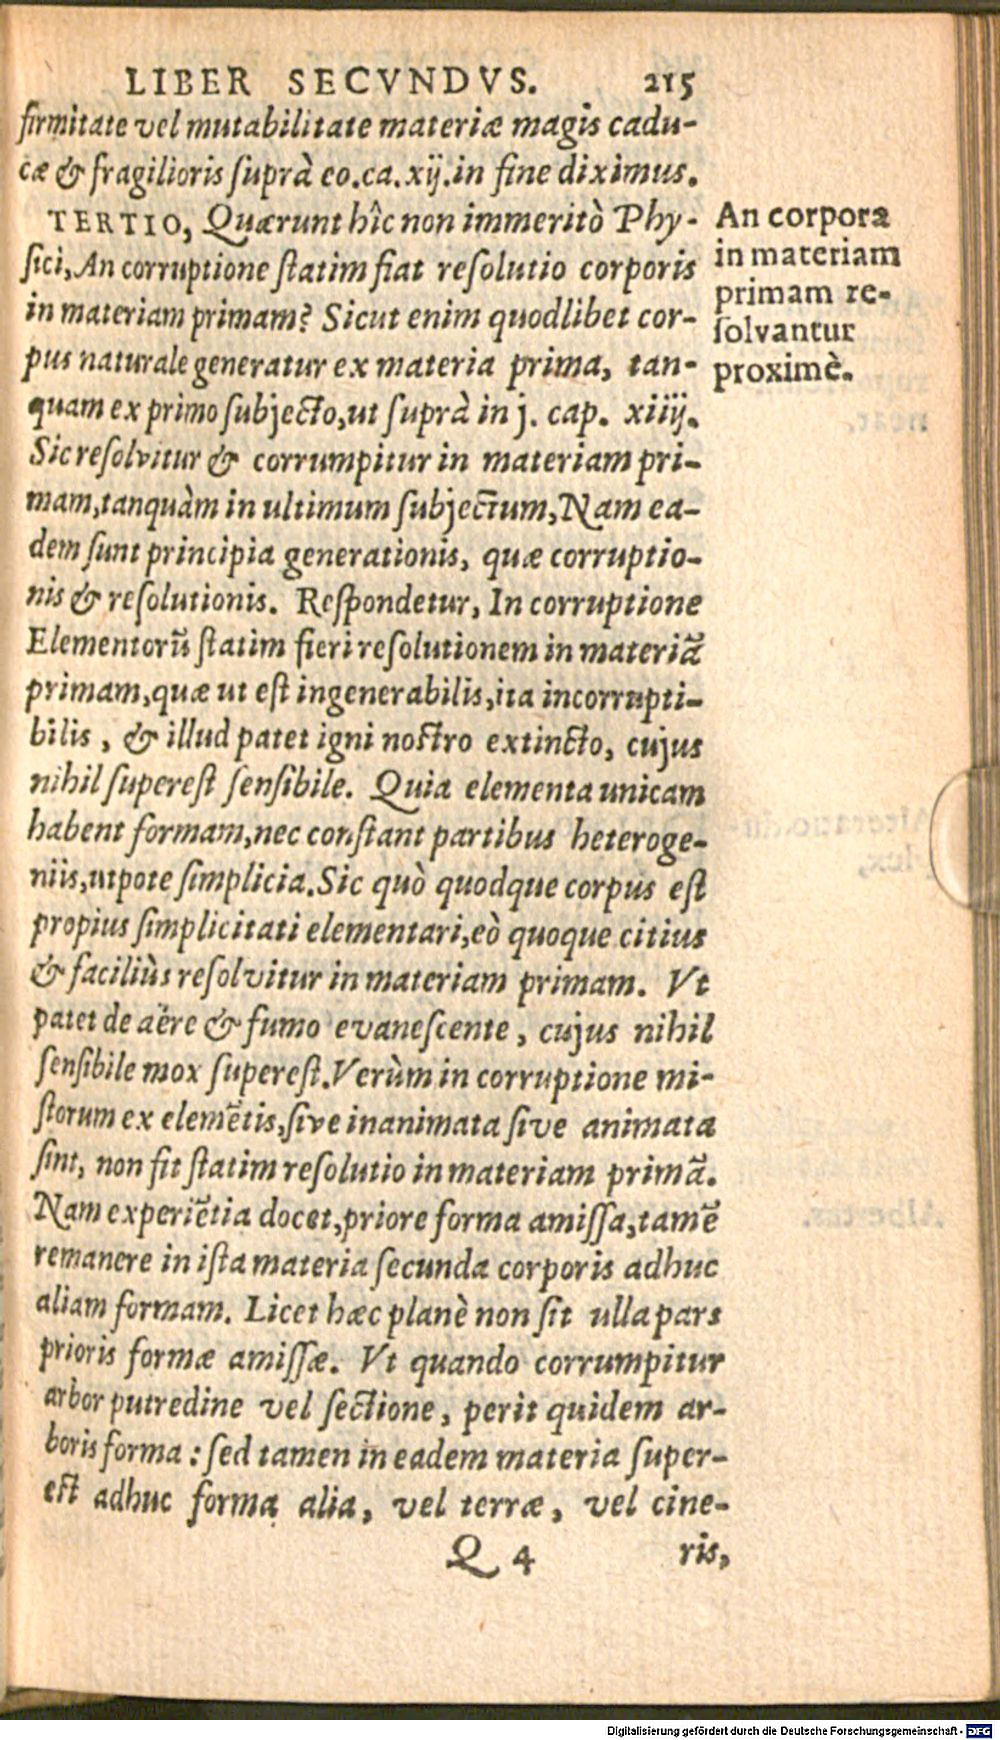 LIBER SECVNDVS. 215
firmitate vel mutabilitate materiæ magis cadu-
cæ & fragilioris ſuprà eo.ca.xij.in fine diximus.
TERTIO, Quærunt hîc non immeritò Phy-
ſici, An corruptione ſtatim fiat reſolutio corporis
in materiam primam? Sicut enim quodlibet cor-
pus naturale generatur ex materia prima, tan-
quam ex primo ſubjecto,ut ſuprà in j. cap. xiiij.
Sic reſolvitur & corrumpitur in materiam pri-
mam,tanquàm in ultimum ſubjectum, Nam ea-
dem ſunt principia generationis, quæ corruptio-
nis & reſolutionis. Reſpondetur, In corruptione
Elementorũ ſtatim fieri reſolutionem in materiã
primam,quæ ut eſt ingenerabilis,ita incorrupti-
bilis, & illud patet igni noſtro extincto, cujus
nihil ſupereſt ſenſibile. Quia elementa unicam
habent formam,nec conſtant partibus heteroge-
niis,utpote ſimplicia.Sic quò quodque corpus eſt
propius ſimplicitati elementari,eò quoque citius
& faciliùs reſolvitur in materiam primam. Vt
patet de aëre & fumo evaneſcente, cujus nihil
ſenſibile mox ſupereſt.Verùm in corruptione mi-
ſtorum ex elemẽtis,ſive inanimata ſive animata
ſint, non fit ſtatim reſolutio in materiam primã.
Nam experiẽtia docet,priore forma amiſſa,tamẽ
remanere in iſta materia ſecunda corporis adhuc
aliam formam. Licet hæc planè non ſit ulla pars
prioris formæ amiſſæ. Vt quando corrumpitur
arbor putredine vel ſectione, perit quidem ar-
boris forma: ſed tamen in eadem materia ſuper-
eſt adhuc forma alia, vel terræ, vel cine-
Q 4 ris,
An corpora
in materiam
primam re-
ſolvantur
proximè.
Digitalisierung gefördert durch die Deutsche Forschungsgemeinschaft - DFG